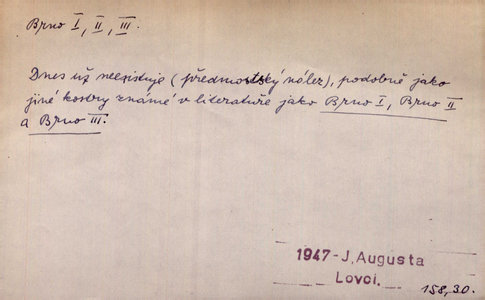 Brno I, II, III.
Dnes už neexistuje (předmostský nález), podobně jako
jiné kostry známé v literatuře jako Brno I, Brno II
a Brno III.
1947 - J. Augusta
Lovci.
158, 30.